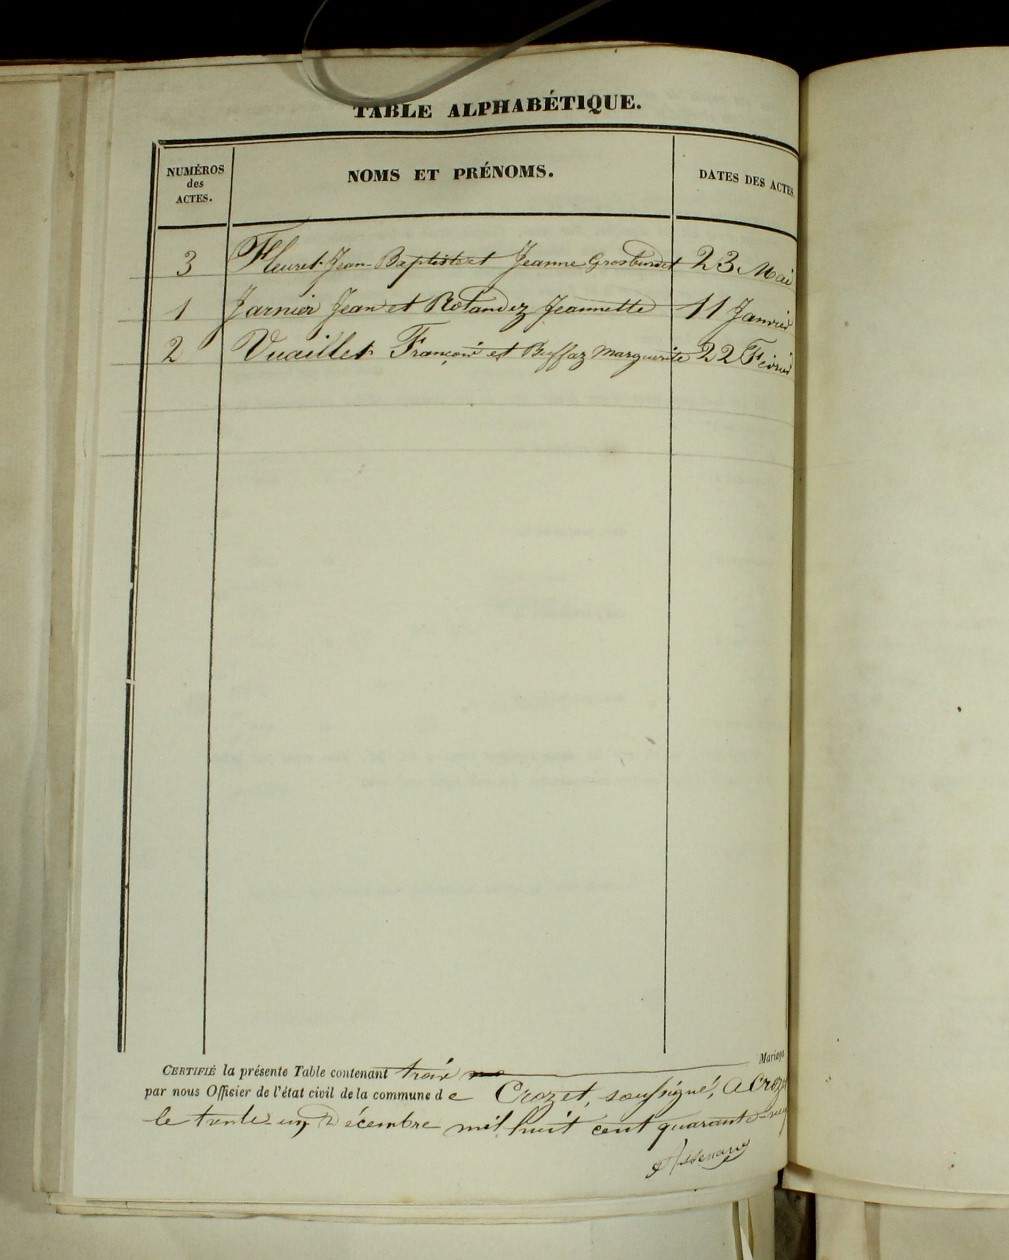 TABLE ALPHABÉTIQUE.
NUMÉROS des ACTES.
NOMS ET PRÉNOMS.
DATES DES ACTES
3 Fleuret Jean-Baptiste et Jeanne Grosburdet 23 Mai
1 Jarnier Jean et Rolandez Jeannette 11 Janvier
2 Vuaillet François et Buffaz Marguerite 22 Février
Mariages
CERTIFIÉ la présente Table contenant trois
par nous Officier de l'état civil de la commune de Crozet, soussigné, A Crozet
le trente un Décembre mil huit cent quarante